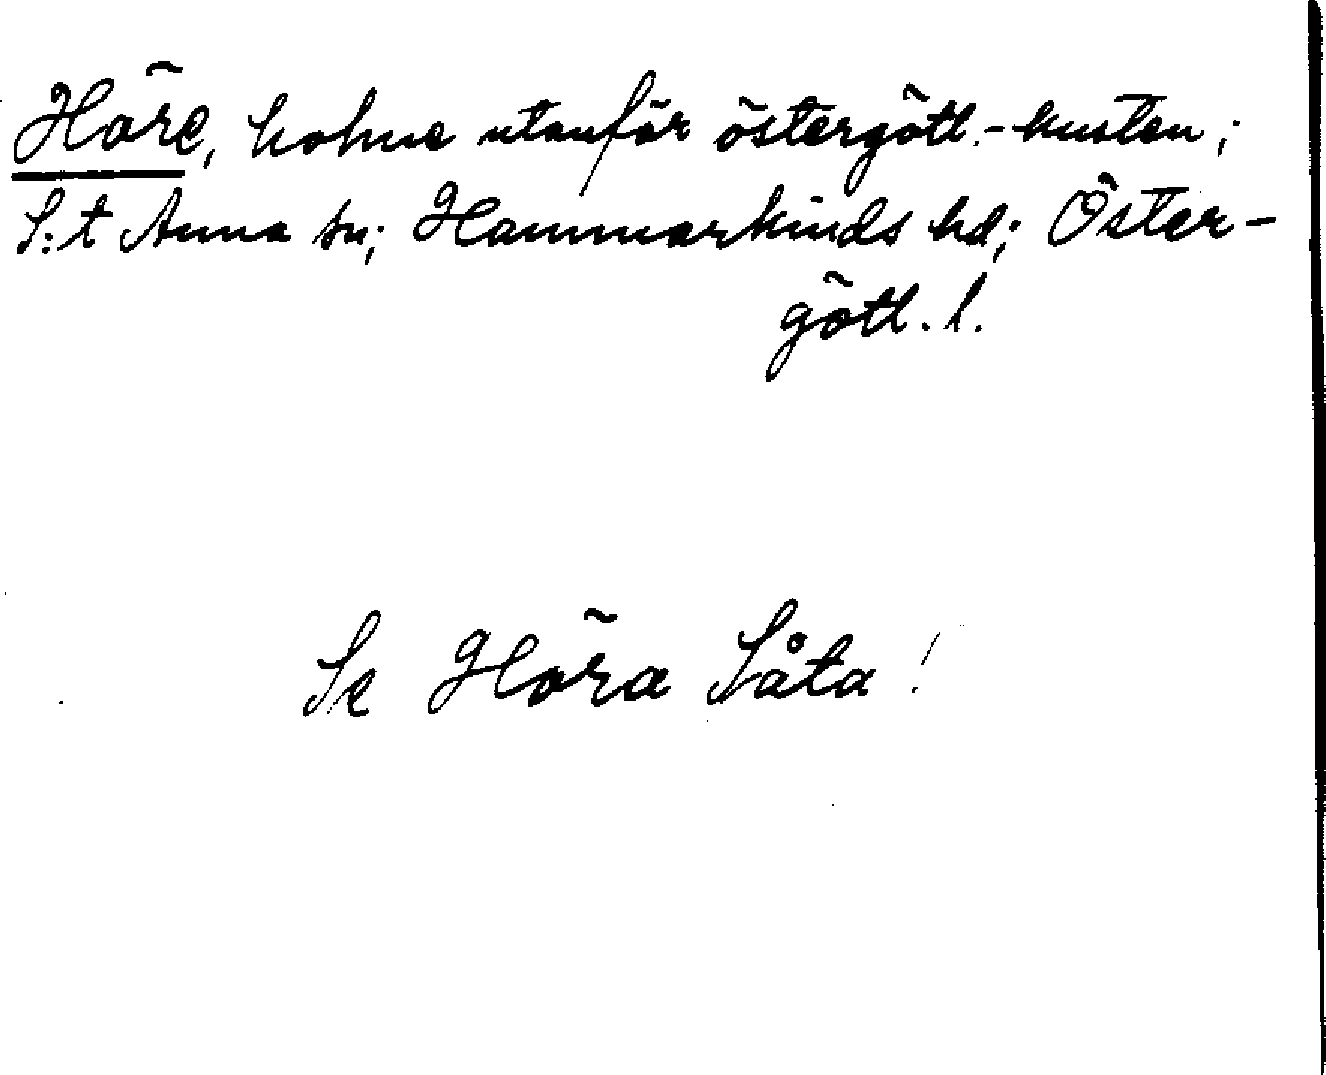 Höre, holme utanför östergötl.-kusten;
S:t Anna sn; Hammarkinds hd; Öster-
götl. l.
Se Höra Såta!